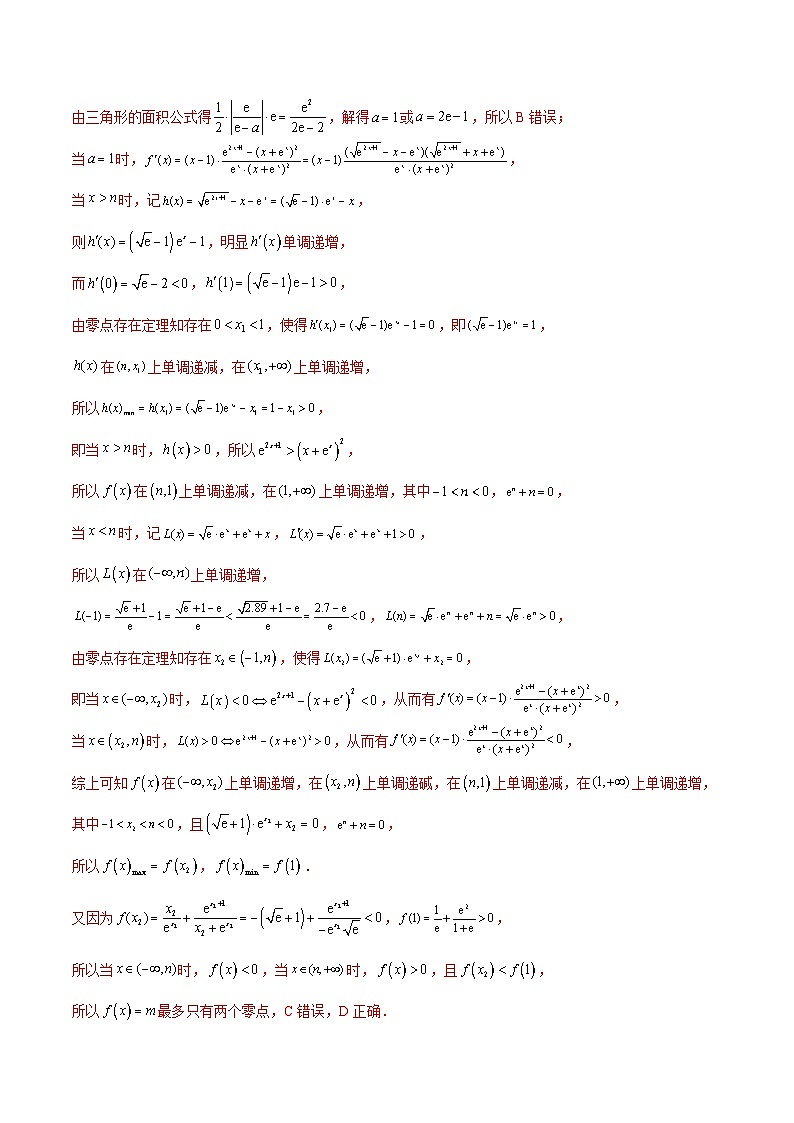 由三角形的面积公式得 $\frac{1}{2}\cdot\left|\frac{e}{e-a}\right|\cdot e=\frac{e^2}{2e-2}$，解得 $a=1$ 或 $a=2e-1$，所以 B 错误；
当 $a=1$ 时，$f'(x)=(x-1)\cdot\frac{e^{2x+1}-(x+e^x)^2}{e^x\cdot(x+e^x)^2}=(x-1)\frac{(\sqrt{e^{2x+1}}-x-e^x)(\sqrt{e^{2x+1}}+x+e^x)}{e^x\cdot(x+e^x)^2}$，
当 $x>n$ 时，记 $h(x)=\sqrt{e^{2x+1}}-x-e^x=(\sqrt{e}-1)\cdot e^x-x$，
则 $h'(x)=(\sqrt{e}-1)e^x-1$，明显 $h'(x)$ 单调递增，
而 $h'(0)=\sqrt{e}-2<0$，$h'(1)=(\sqrt{e}-1)e-1>0$，
由零点存在定理知存在 $0<x_1<1$，使得 $h'(x_1)=(\sqrt{e}-1)e^{x_1}-1=0$，即 $(\sqrt{e}-1)e^{x_1}=1$，
$h(x)$ 在 $(n,x_1)$ 上单调递减，在 $(x_1,+\infty)$ 上单调递增，
所以 $h(x)_{\min}=h(x_1)=(\sqrt{e}-1)e^{x_1}-x_1=1-x_1>0$，
即当 $x>n$ 时，$h(x)>0$，所以 $e^{2x+1}>(x+e^x)^2$，
所以 $f(x)$ 在 $(n,1)$ 上单调递减，在 $(1,+\infty)$ 上单调递增，其中 $-1<n<0$，$e^n+n=0$，
当 $x<n$ 时，记 $L(x)=\sqrt{e}\cdot e^x+e^x+x$，$L'(x)=\sqrt{e}\cdot e^x+e^x+1>0$，
所以 $L(x)$ 在 $(-\infty,n)$ 上单调递增，
$L(-1)=\frac{\sqrt{e}+1}{e}-1=\frac{\sqrt{e}+1-e}{e}<\frac{\sqrt{2.89}+1-e}{e}=\frac{2.7-e}{e}<0$，$L(n)=\sqrt{e}\cdot e^n+e^n+n=\sqrt{e}\cdot e^n>0$，
由零点存在定理知存在 $x_2\in(-1,n)$，使得 $L(x_2)=(\sqrt{e}+1)\cdot e^{x_2}+x_2=0$，
即当 $x\in(-\infty,x_2)$ 时，$L(x)<0\Leftrightarrow e^{2x+1}-(x+e^x)^2<0$，从而有 $f'(x)=(x-1)\cdot\frac{e^{2x+1}-(x+e^x)^2}{e^x\cdot(x+e^x)^2}>0$，
当 $x\in(x_2,n)$ 时，$L(x)>0\Leftrightarrow e^{2x+1}-(x+e^x)^2>0$，从而有 $f'(x)=(x-1)\cdot\frac{e^{2x+1}-(x+e^x)^2}{e^x\cdot(x+e^x)^2}<0$，
综上可知 $f(x)$ 在 $(-\infty,x_2)$ 上单调递增，在 $(x_2,n)$ 上单调递碱，在 $(n,1)$ 上单调递减，在 $(1,+\infty)$ 上单调递增，
其中 $-1<x_2<n<0$，且 $(\sqrt{e}+1)\cdot e^{x_2}+x_2=0$，$e^n+n=0$，
所以 $f(x)_{\max}=f(x_2)$，$f(x)_{\min}=f(1)$．
又因为 $f(x_2)=\frac{x_2}{e^{x_2}}+\frac{e^{x_2+1}}{x_2+e^{x_2}}=-(\sqrt{e}+1)+\frac{e^{x_2+1}}{-e^{x_2}\sqrt{e}}<0$，$f(1)=\frac{1}{e}+\frac{e^2}{1+e}>0$，
所以当 $x\in(-\infty,n)$ 时，$f(x)<0$，当 $x\in(n,+\infty)$ 时，$f(x)>0$，且 $f(x_2)<f(1)$，
所以 $f(x)=m$ 最多只有两个零点，C 错误，D 正确．